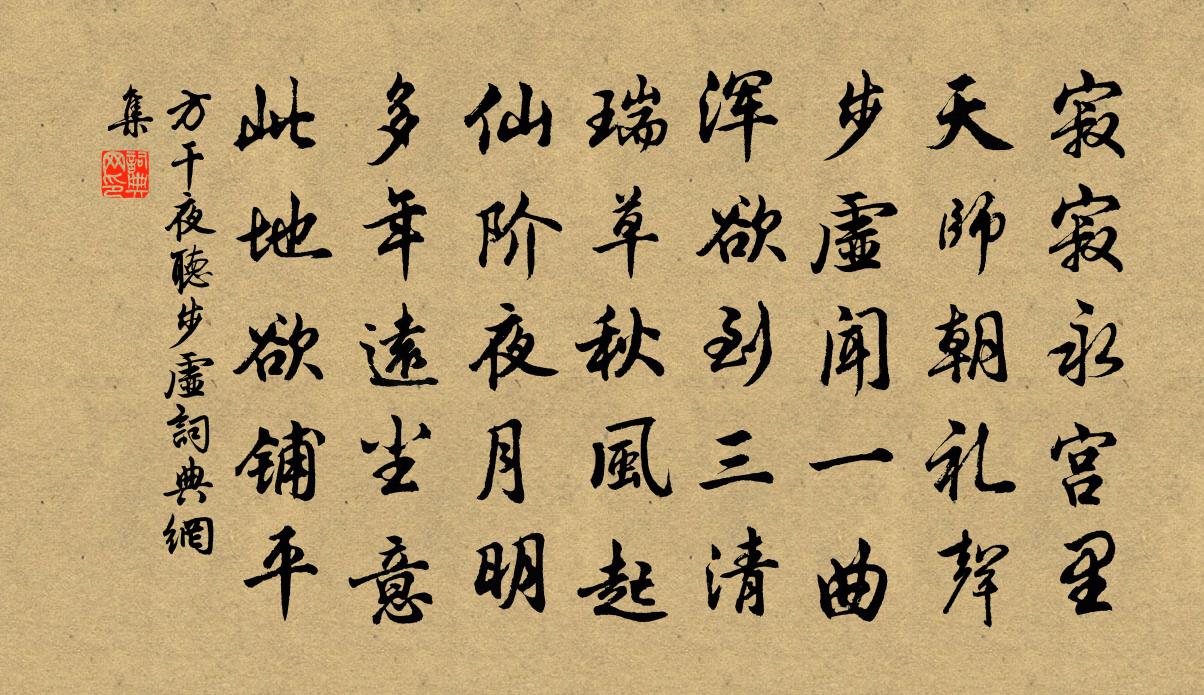 寂寂永宫里
天师朝礼聲
步虛闻一曲
浑欲到三清
瑞草秋風起
仙阶夜月明
多年遠尘意
此地欲铺平
方干夜聽步虛詞典網
集
詞典
网印